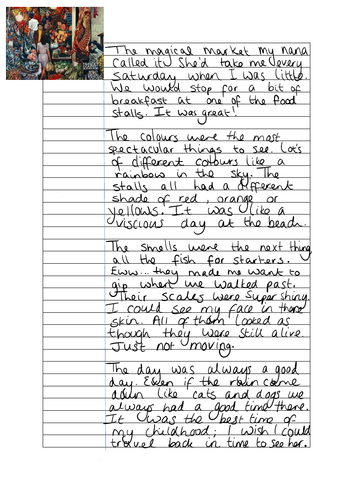 The magical market my nana
called it. She'd take me every
saturday when I was little.
We would stop for a bit of
breakfast at one of the food
stalls. It was great!
The colours were the most
spectacular things to see. Lot's
of different colours like a
rainbow in the sky. The
stalls all had a different
shade of red, orange or
yellows. It was like a
viscious day at the beach.
The smells were the next thing
all the fish for starters.
Eww... they made me want to
gip when we walked past.
Their scales were super shiny.
I could see my face in there
skin. All of them looked as
though they were still alive.
Just not moving.
The day was always a good
day. Even if the rain came
down like cats and dogs we
always had a good time there.
It was the best time of
my childhood; I wish I could
travel back in time to see her.